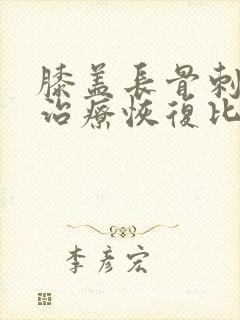 膝盖長骨刺
治療恢復比
李彦宏